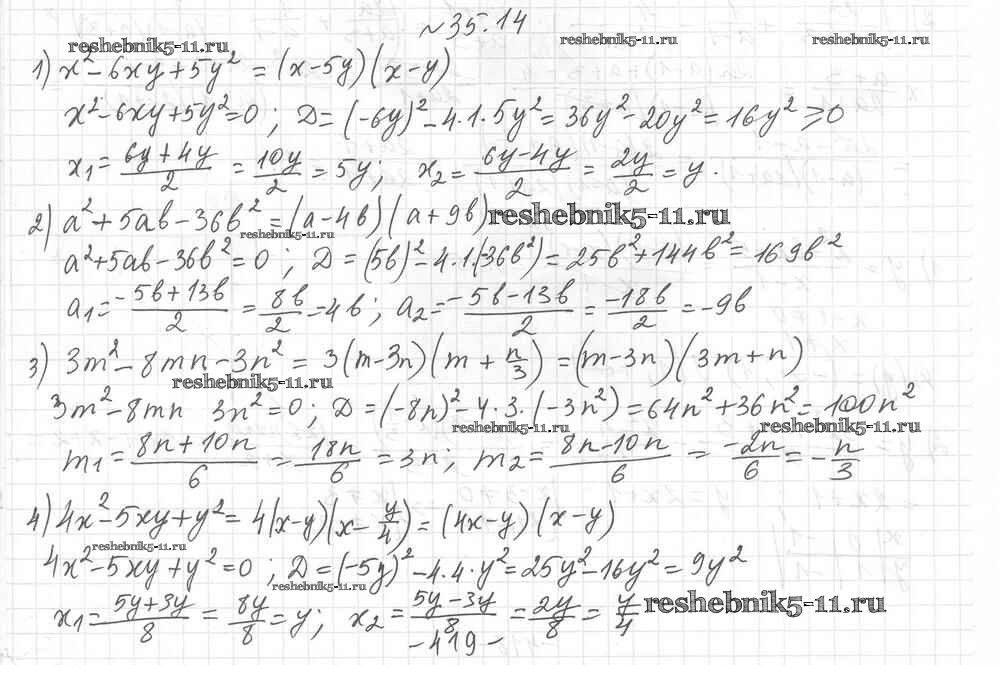 №35.14
reshebnik5-11.ru reshebnik5-11.ru reshebnik5-11.ru
1) x² - 6xy + 5y² = (x-5y)(x-y)
x² - 6xy + 5y² = 0; D = (-6y)² - 4·1·5y² = 36y² - 20y² = 16y² ≥ 0
x₁ = (6y+4y)/2 = 10y/2 = 5y; x₂ = (6y-4y)/2 = 2y/2 = y.
2) a² + 5ab - 36b² = (a-4b)(a+9b) reshebnik5-11.ru
reshebnik5-11.ru
a² + 5ab - 36b² = 0; D = (5b)² - 4·1·(-36b²) = 25b² + 144b² = 169b²
a₁ = (-5b+13b)/2 = 8b/2 = 4b; a₂ = (-5b-13b)/2 = -18b/2 = -9b
3) 3m² - 8mn - 3n² = 3(m-3n)(m + n/3) = (m-3n)(3m+n)
reshebnik5-11.ru
3m² - 8mn 3n² = 0; D = (-8n)² - 4·3·(-3n²) = 64n² + 36n² = 100n²
reshebnik5-11.ru reshebnik5-11.ru
m₁ = (8n+10n)/6 = 18n/6 = 3n; m₂ = (8n-10n)/6 = -2n/6 = -n/3
4) 4x² - 5xy + y² = 4(x-y)(x - y/4) = (4x-y)(x-y)
reshebnik5-11.ru
4x² - 5xy + y² = 0; D = (-5y)² - 4·4·y² = 25y² - 16y² = 9y²
reshebnik5-11.ru
x₁ = (5y+3y)/8 = 8y/8 = y; x₂ = (5y-3y)/8 = 2y/8 = y/4 reshebnik5-11.ru
-419-